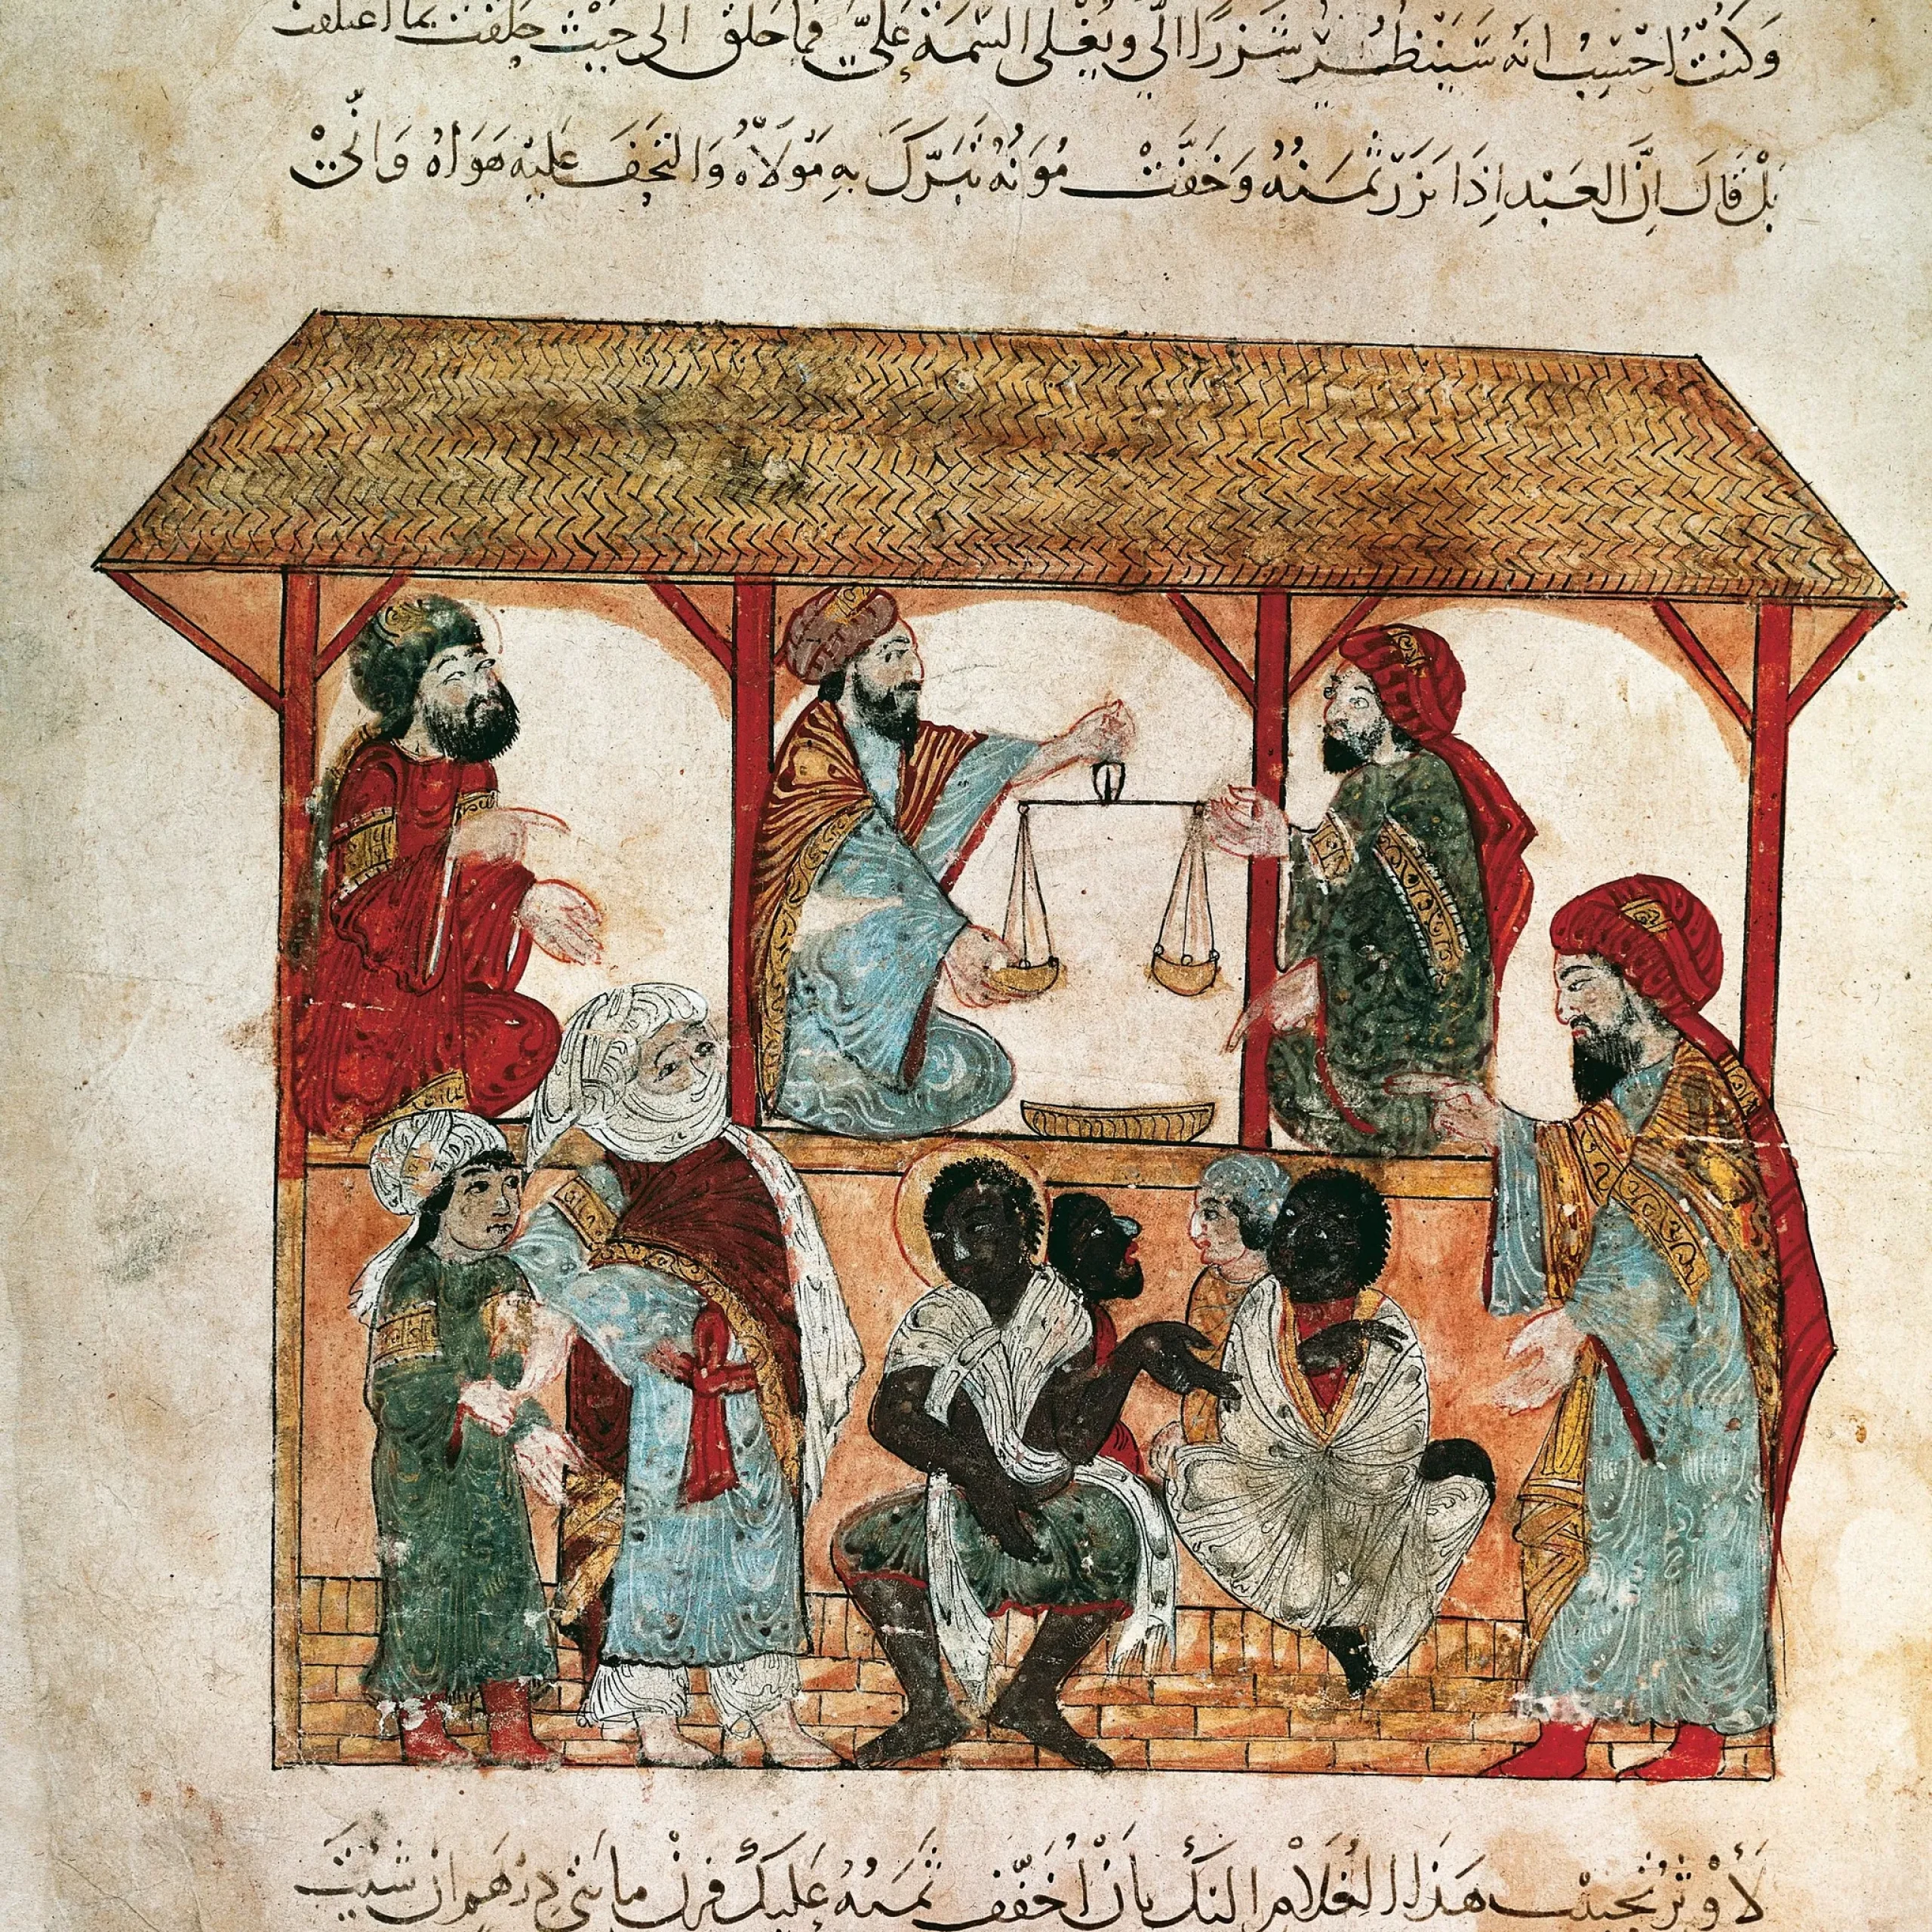 وَكُنْتُ احْسِبُ انَّهُ سَيَنْظُرُ شَزَرًا الَيَّ وَيُغْلى السّيمَةَ عَلَيَّ فما حَلّقَ الى حَيْثُ حَلّقتُ بما اعتلقتُ
بَلْ قَالَ اِنَّ العَبْدَ اِذَا نَزَرَ ثَمَنُهُ وَخَفَّتْ مُوَنُهُ تَبَرَّكَ بِهِ مَوْلَاهُ وَالتَحَفَ عَلَيْهِ هَوَاهُ وَانّىْ
لَأُوْثِرُ تَحْبِيبَ هَذَا الغُلَامِ اليْكَ بِاَنْ اُخَفِّفَ ثَمَنَهُ عَلَيْكَ فَزِنْ مايتىْ دِرْهَمٍ اِنْ شِئتَ